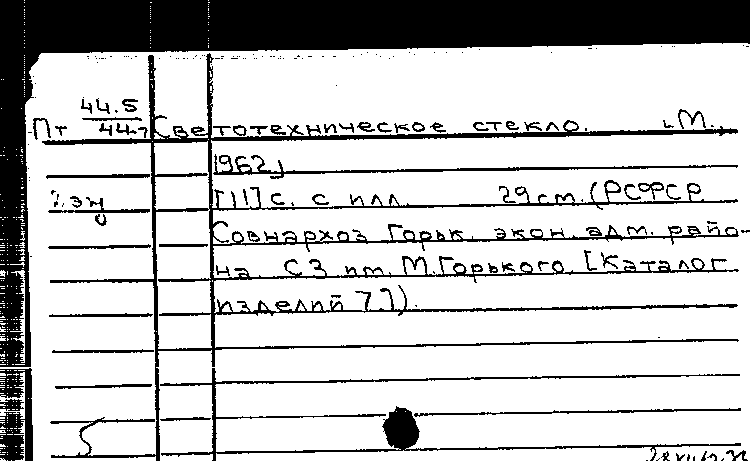 44.5
Пт 44.7 Светотехническое стекло. М.,
1962]
[11] с. с илл. 29 см. (РСФСР.
Совнархоз Горьк. экон. адм. райо-
на. СЗ им. М. Горького. [Каталог
изделий 7.]).
5